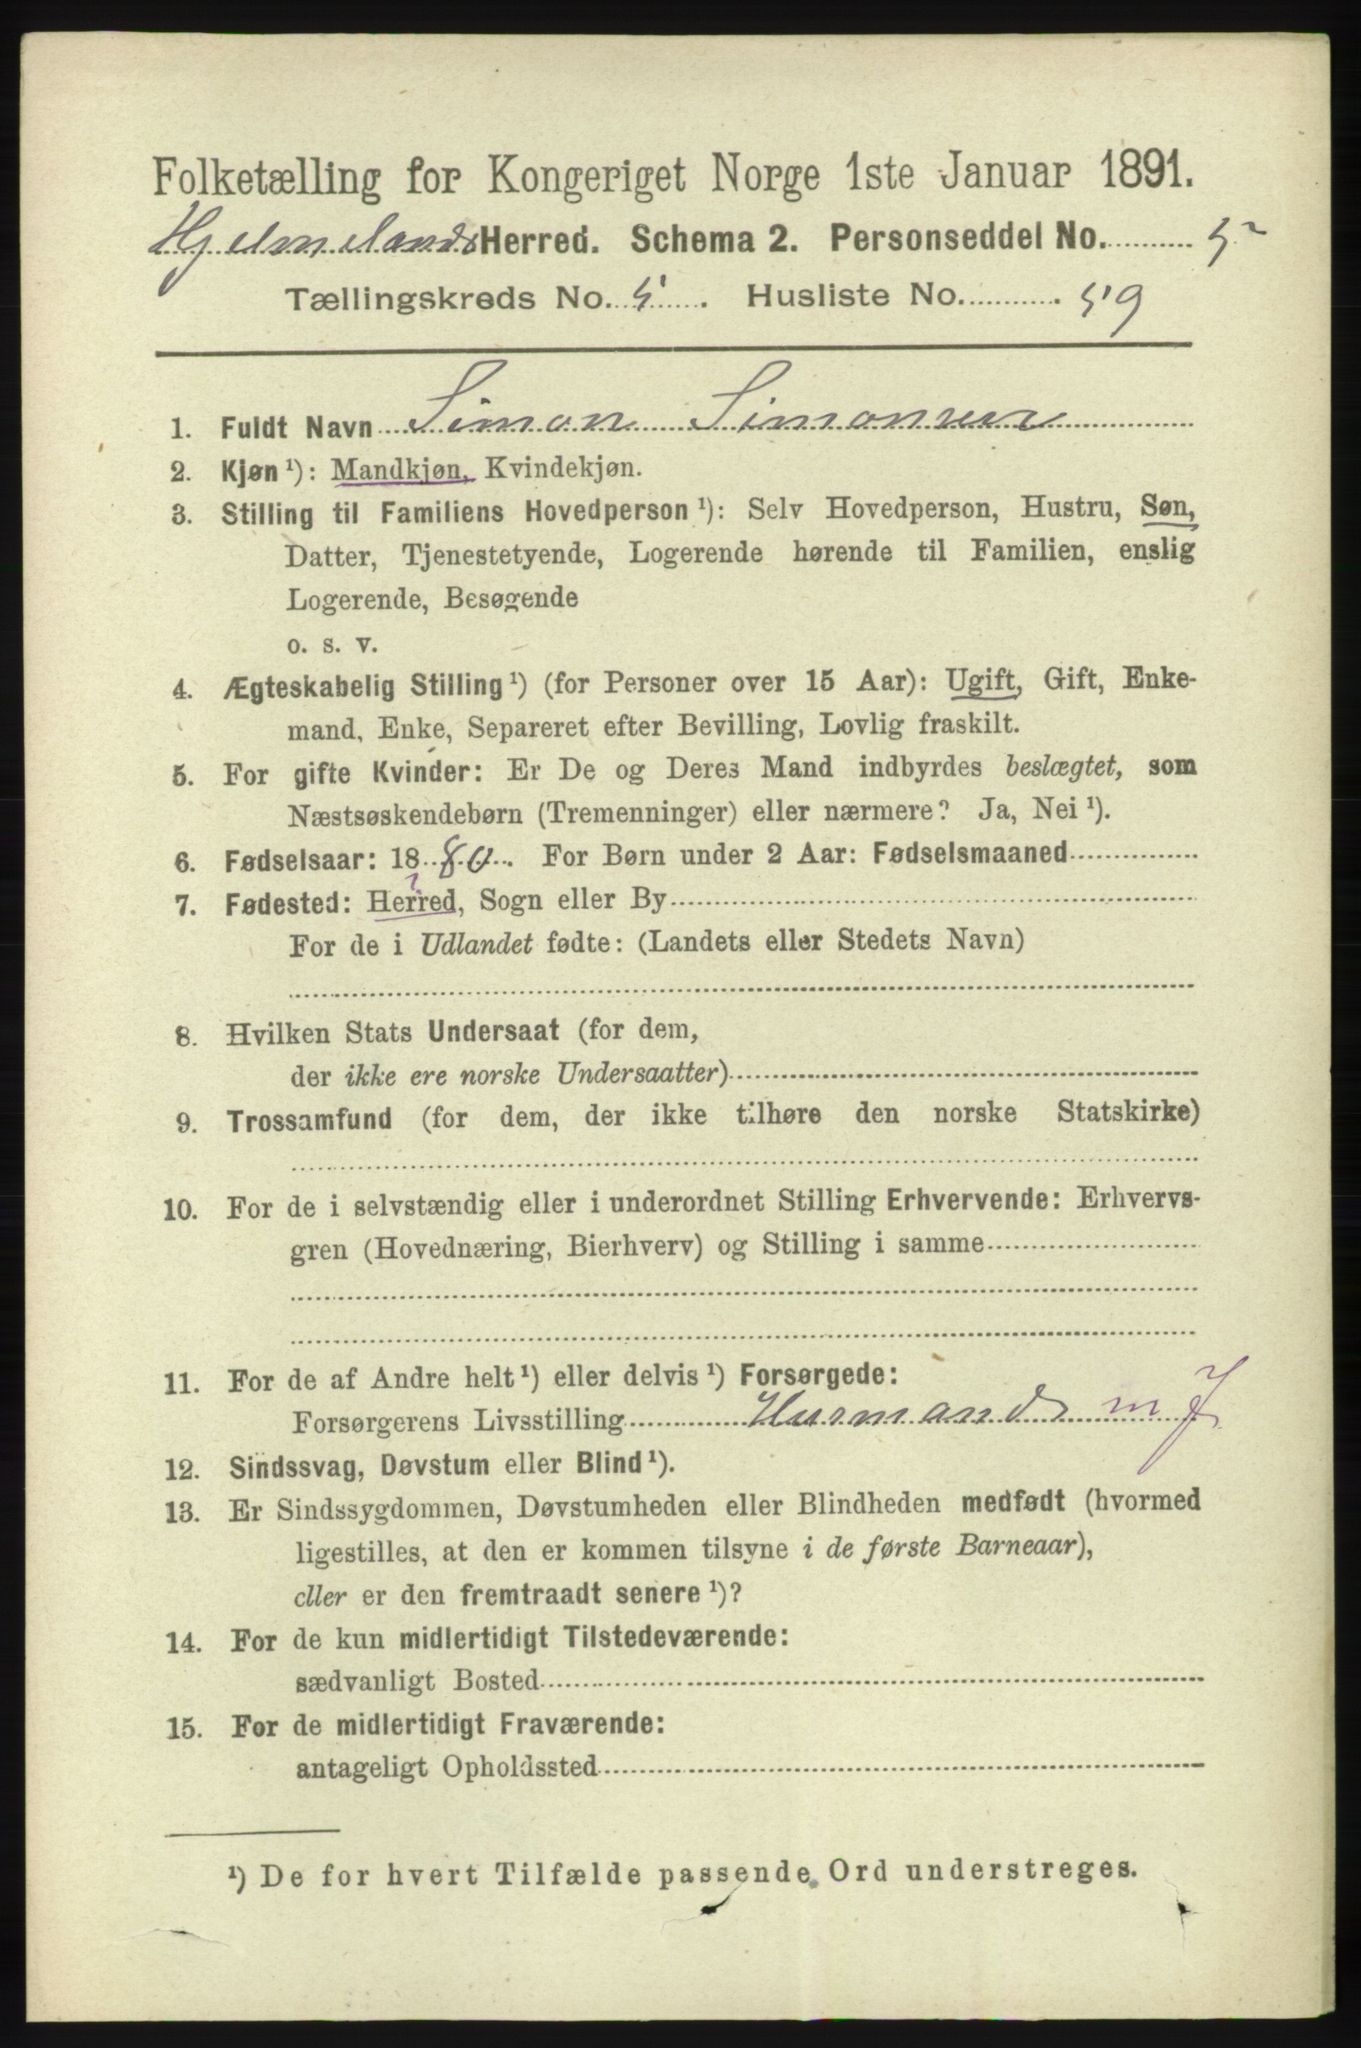 Folketælling for Kongeriget Norge 1ste Januar 1891.
Hjelmelands Herred. Schema 2. Personseddel No. 5
Tællingskreds No. 5. Husliste No. 59
1. Fuldt Navn Simon Simonsen
2. Kjøn ¹): Mandkjøn, Kvindekjøn.
3. Stilling til Familiens Hovedperson ¹): Selv Hovedperson, Hustru, Søn,
Datter, Tjenestetyende, Logerende hørende til Familien, enslig
Logerende, Besøgende
o. s. v.
4. Ægteskabelig Stilling ¹) (for Personer over 15 Aar): Ugift, Gift, Enke-
mand, Enke, Separeret efter Bevilling, Lovlig fraskilt.
5. For gifte Kvinder: Er De og Deres Mand indbyrdes beslægtet, som
Næstsøskendebørn (Tremenninger) eller nærmere? Ja, Nei ¹).
6. Fødselsaar: 1880. For Børn under 2 Aar: Fødselsmaaned
7. Fødested: Herred, Sogn eller By
For de i Udlandet fødte: (Landets eller Stedets Navn)
8. Hvilken Stats Undersaat (for dem,
der ikke ere norske Undersaatter)
9. Trossamfund (for dem, der ikke tilhøre den norske Statskirke)
10. For de i selvstændig eller i underordnet Stilling Erhvervende: Erhvervs-
gren (Hovednæring, Bierhverv) og Stilling i samme
11. For de af Andre helt ¹) eller delvis ¹) Forsørgede:
Forsørgerens Livsstilling Husmand m J
12. Sindssvag, Døvstum eller Blind ¹).
13. Er Sindssygdommen, Døvstumheden eller Blindheden medfødt (hvormed
ligestilles, at den er kommen tilsyne i de første Barneaar),
eller er den fremtraadt senere ¹)?
14. For de kun midlertidigt Tilstedeværende:
sædvanligt Bosted
15. For de midlertidigt Fraværende:
antageligt Opholdssted
¹) De for hvert Tilfælde passende Ord understreges.